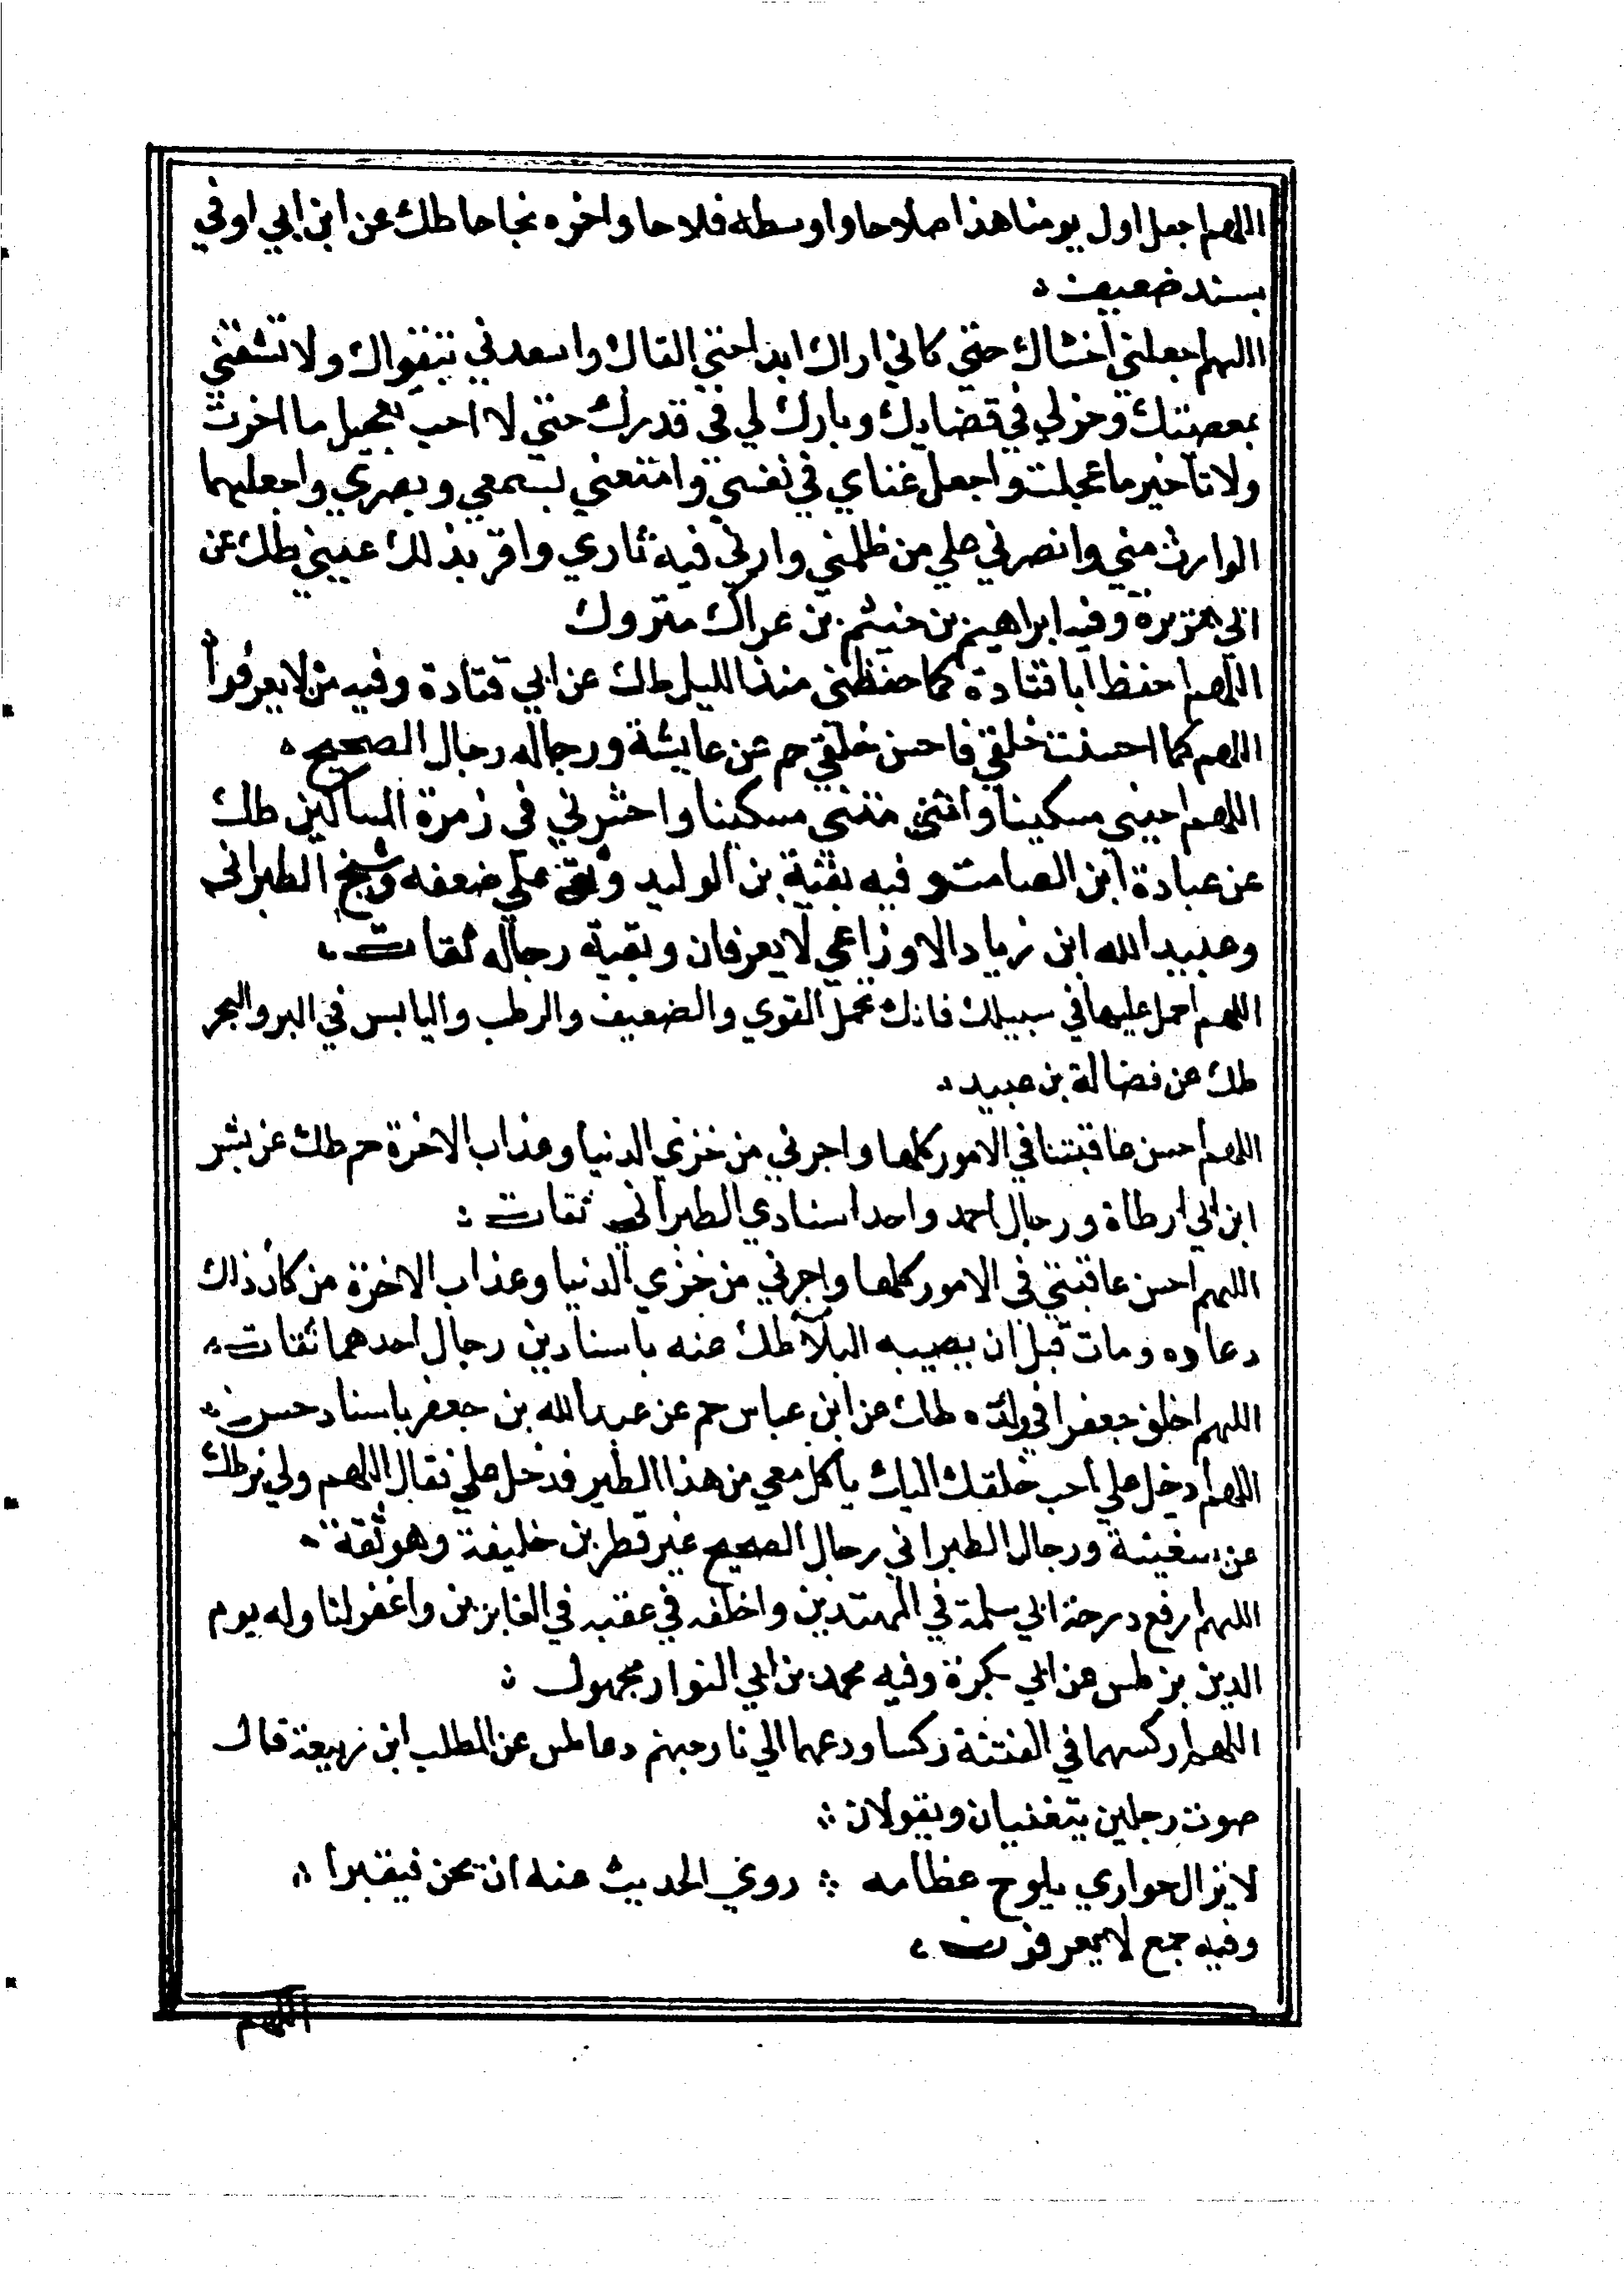 اللهم اجعل اول يومنا هذا صلاحا واوسطه فلاحا واخره نجاحا طك عن ابن ابي اوفي
بسند ضعيف
اللهم اجعلني اخشاك حتي كاني اراك ابدا حتي القاك واسعدني بتقواك ولا تشقني
بمعصيتك وخر لي في قضايك وبارك لي في قدرك حتي لا احب تعجيل ما اخرت
ولا تاخير ما عجلت واجعل غناي في نفسي وامتعني بسمعي وبصري واجعلهما
الوارث مني وانصرني علي من ظلمني وارني فيه ثاري واقر بذلك عيني طك عن
ابي هريرة وفيه ابراهيم بن خيثم بن عراك متروك
اللهم احفظ ابا قتادة كما حفظني منذ الليل طك عن ابي قتادة وفيه من لا يعرفوا
اللهم كما احسنت خلقي فاحسن خلقي حم عن عايشة ورجاله رجال الصحيح
اللهم احيني مسكينا وامتني مسكينا واحشرني في زمرة المساكين طك
عن عبادة ابن الصامت وفيه بقية بن الوليد وثق علي ضعفه وشيخ الطبراني
وعبيد الله ابن زياد الاوزاعي لا يعرفان وبقية رجاله ثقات
اللهم احمل عليها في سبيلك فانك تحمل القوي والضعيف والرطب واليابس في البر والبحر
طك عن فضالة بن عبيد
اللهم احسن عاقبتنا في الامور كلها واجرني من خزي الدنيا وعذاب الاخرة حم طك عن بشر
ابن ابي ارطاة ورجال احمد واحد اسنادي الطبراني ثقات
اللهم احسن عاقبتي في الامور كلها واجرني من خزي الدنيا وعذاب الاخرة من كان ذلك
دعاوه ومات قبل ان يصيبه البلآ طك عنه باسنادين رجال احدهما ثقات
اللهم اخلف جعفرا في ولده طك عن ابن عباس حم عن عبد الله بن جعفر باسناد حسن
اللهم ادخل علي احب خلقك اليك ياكل معي من هذا الطير فدخل علي فقال اللهم ولي بز طك
عن سفينة ورجال الطبراني رجال الصحيح غير قطر بن خليفة وهو ثقة
اللهم ارفع درجة ابي سلمة في المهتدين واخلفه في عقبه في الغابرين واغفر لنا وله يوم
الدين بز طس عن ابي بكرة وفيه محمد بن ابي النوار مجهول
اللهم اركسهما في الفتنة ركسا ودعهما الي نار جهنم دعا طس عن المطلب ابن ربيعة قال
صوت رجلين يتغنيان ويقولان
لا يزال حواري يلوح عظامه روي الحديث عنه ان يحن فيقبرا
وفيه جمع لا يعرفون
اللهم